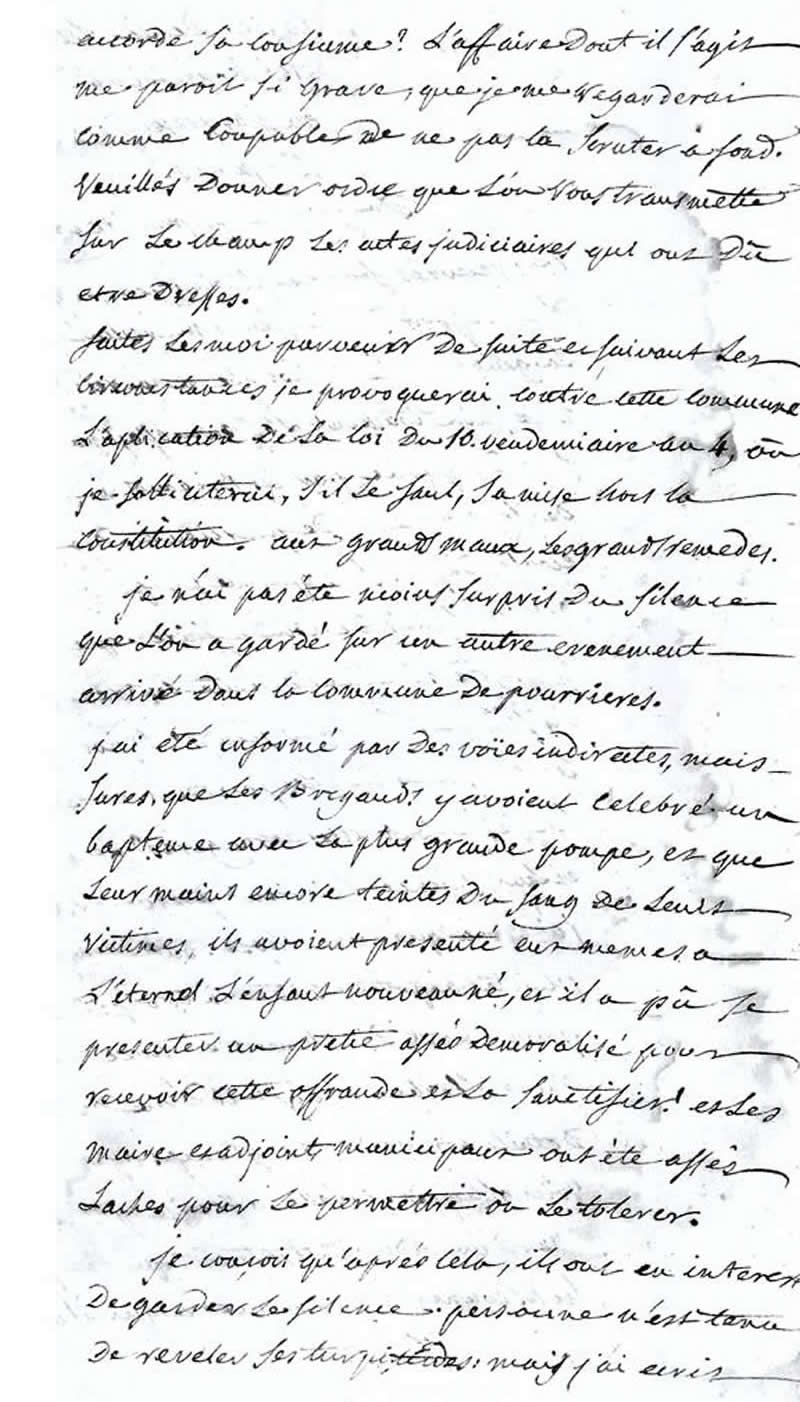 accorde sa confiance? L'affaire Dont il s'agit
me paroit si grave, que je me regarderai
comme Coupable De ne pas la scruter a fond.
Veuillés Donner ordre que L'on Vous transmette
sur Le champ Les actes judiciaires qui ont Dû
etre Dresses.
faites Les moi parvenir De suite et suivant Les
circonstances je provoquerai contre cette commune
L'aplication De La loi Du 10. vendemiaire an 4, ou
je solliciterai, s'il Le faut, sa mise hors la
constitution. aux grands maux, Les grands remedes.
je n'ai pas été moins surpris Du silence
que L'on a gardé sur un autre evenement
arrivé Dans la Commune De pourrieres.
j'ai été informé par Des voïes indirectes, mais
sures, que Les Brigands y avoient Celebré un
bapteme avec La plus grande pompe, et que
Leur mains encore teintes Du sang De Leurs
victimes, ils avoient presenté eux memes a
L'éternel L'enfant nouveau né, et il a pû se
presenter un pretre assés Demoralisé pour
recevoir cette offrande et La sanctifier! et Les
maire et adjoints municipaux ont été assés
Laches pour Le permettre ou Le tolerer.
je conçois qu'aprés Cela, ils ont eu interet
De garder Le silence. personne n'est tenu
De reveler ses turpitudes: mais j'ai ecrit